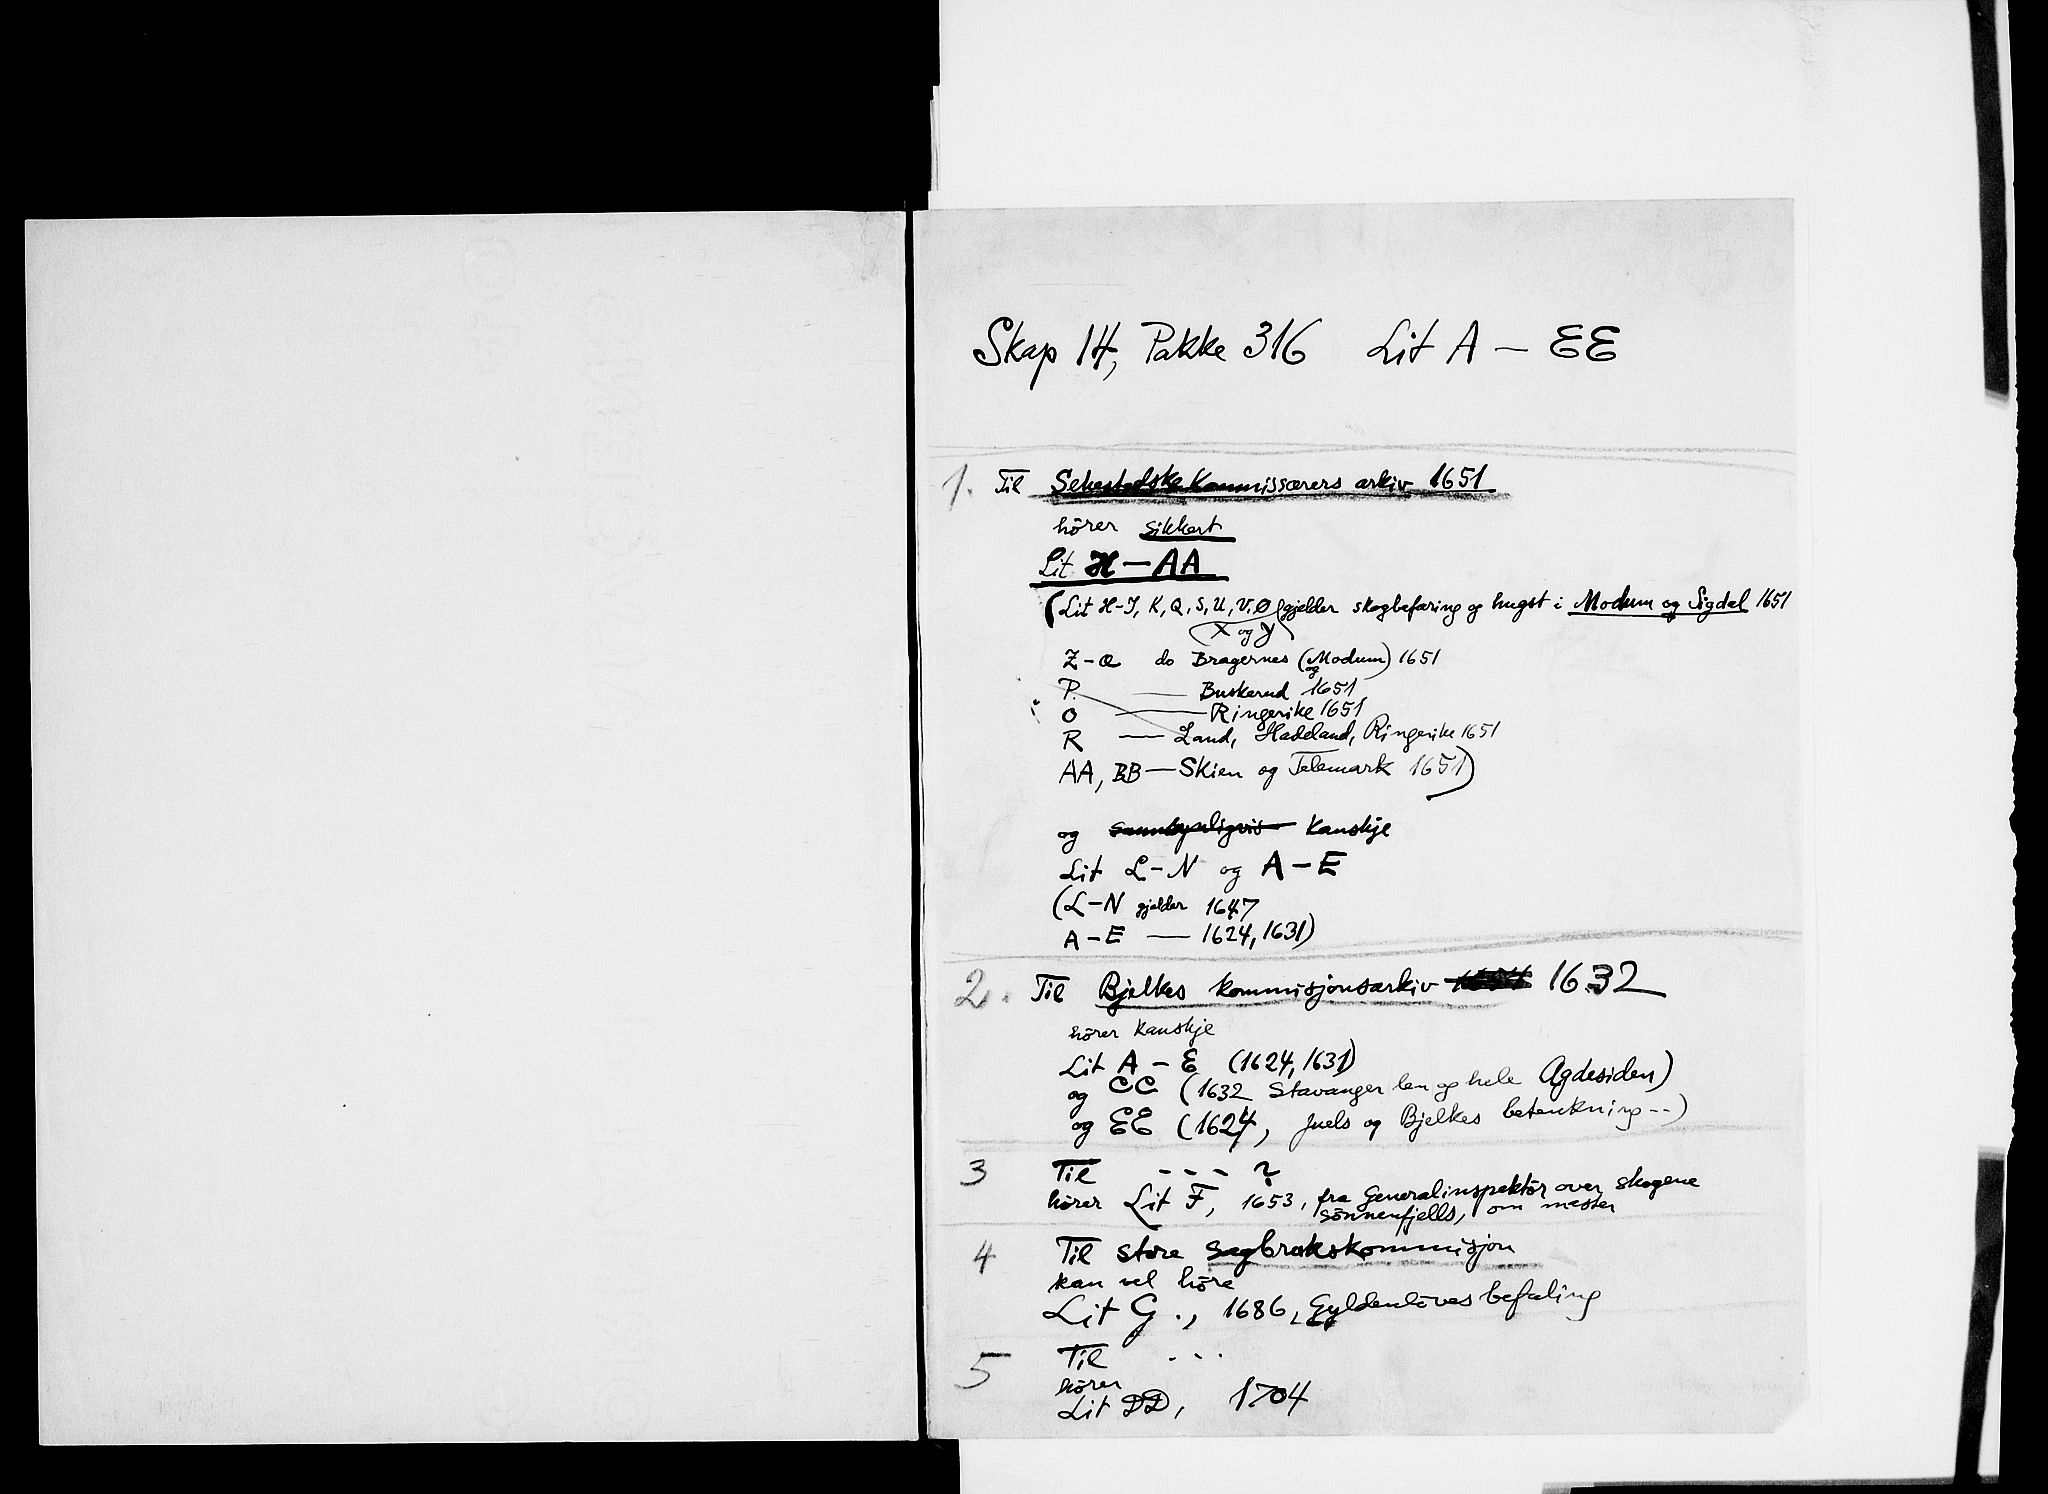 Skap 14, Pakke 316 Lit A - EE
1. Til Sehestedske Kommissærers arkiv 1651
hörer sikkert
Lit H - AA
(Lit H-J, K, Q, S, U, V, Ø gjelder skogbefaring og hugst i Modum og Sigdal 1651
X og Y
Z-Æ do Bragernes (og Modum) 1651
P. — Buskerud 1651
O — Ringerike 1651
R — Land, Hadeland, Ringerike 1651
AA, BB — Skien og Telemark 1651)
og sannsynligvis kanskje
Lit L-N og A-E
(L-N gjelder 1647
A-E — 1624, 1631)
2. Til Bjelkes kommisjonsarkiv 1632
hörer kanskje
Lit A - E (1624, 1631)
og CC (1632 Stavanger len og hele Agdesiden)
og EE (1624, Juels og Bjelkes betenkning --)
3 Til - - - ?
hörer Lit F, 1653, fra Generalinspektör over skogene
sönnenfjells, om master
4 Til store sagbrukskommisjon
kan vel höre
Lit G., 1686, Gyldenlöves befaling
5 Til . . .
hörer
Lit DD, 1704